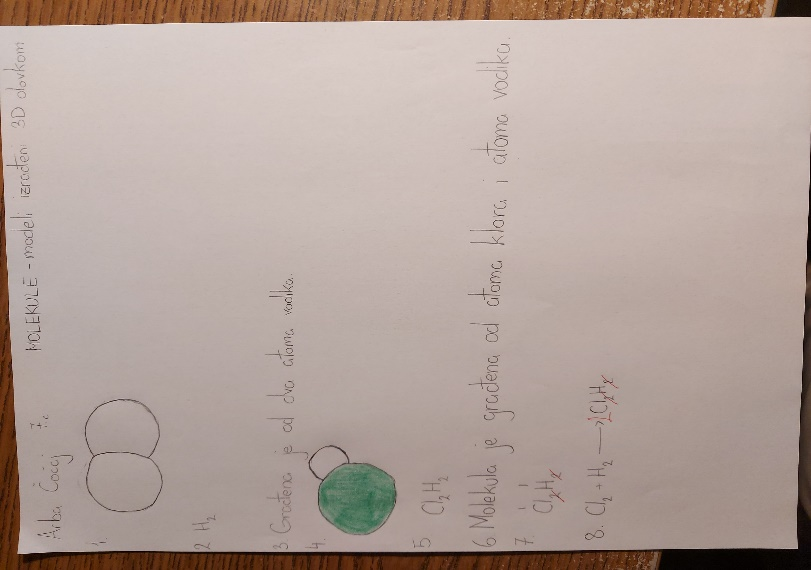 Arba Čoāgj 7.c
MOLEKULE - modeli izrađeni 3D olovkom
1.
2 H₂
3 Građena je od dva atoma vodika.
4.
5 Cl₂H₂
6 Molekula je građena od atoma klora i atoma vodika.
7. Cl₂H₂
8. Cl₂ + H₂ → 2Cl₂H₂